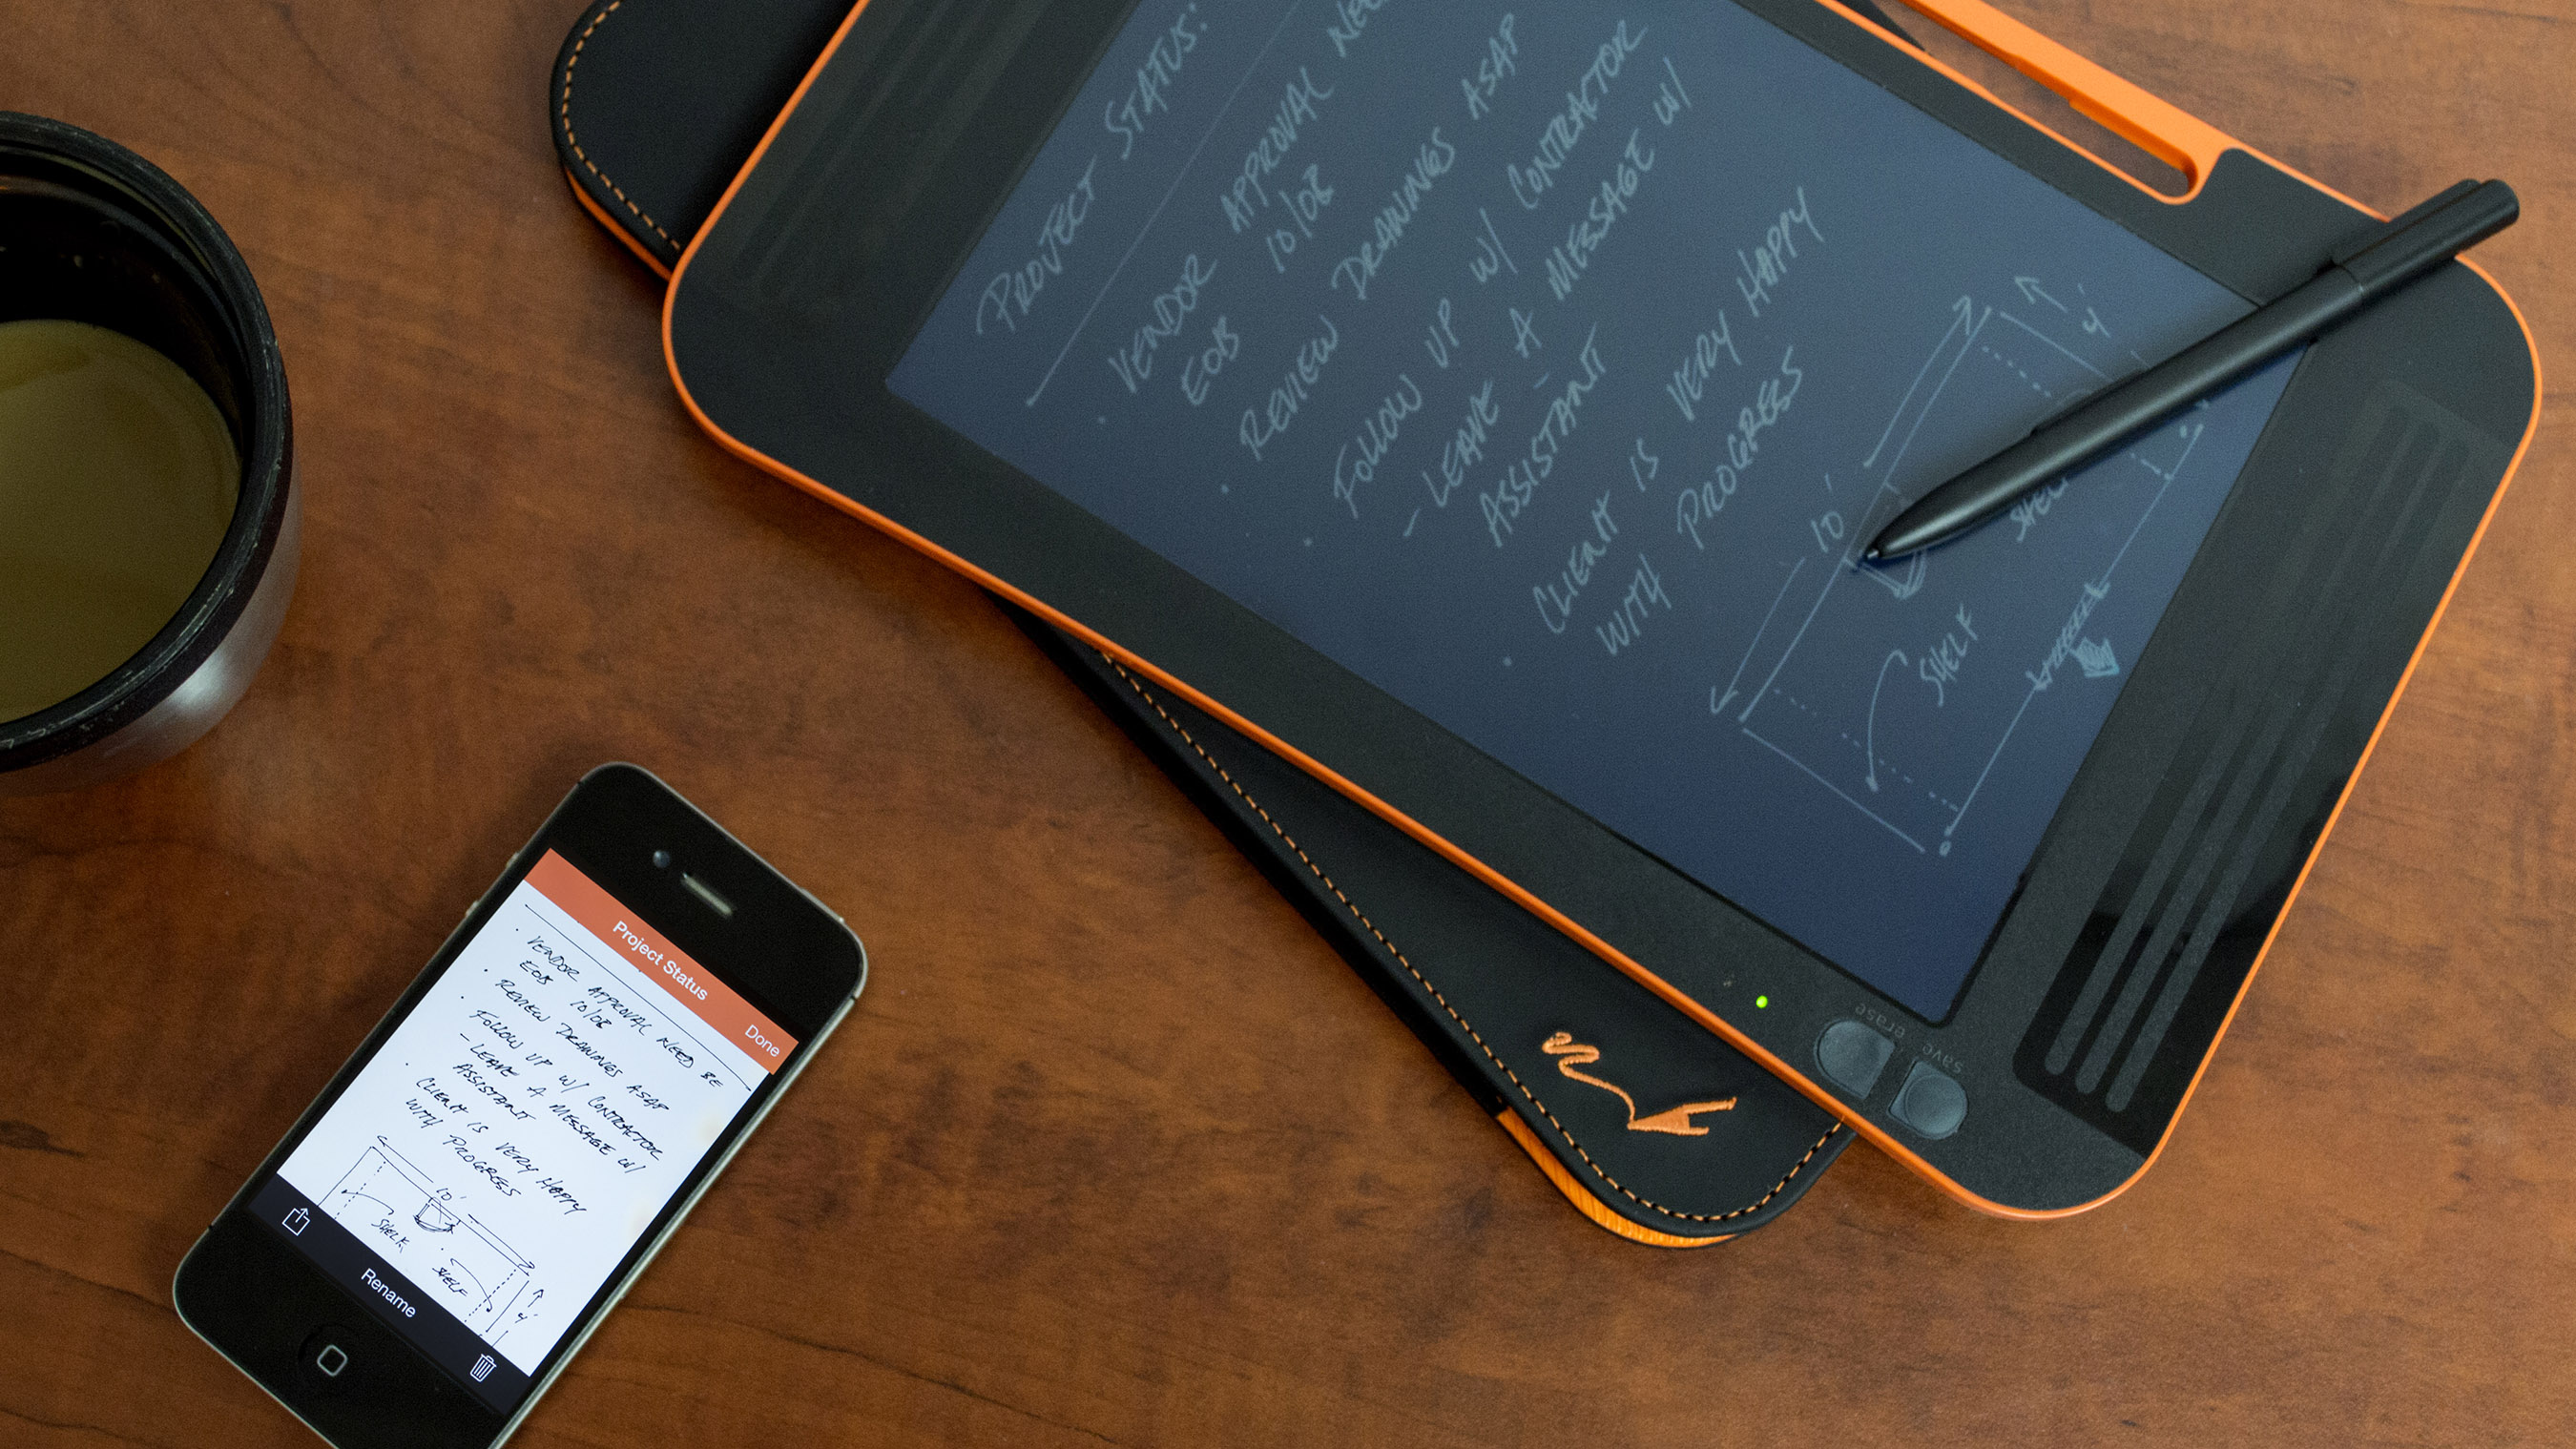 PROJECT STATUS:
VENDOR APPROVAL
EOB 10/08
REVIEW DRAWINGS ASAP
FOLLOW UP W/ CONTRACTOR
- LEAVE A MESSAGE W/
ASSISTANT
CLIENT IS VERY HAPPY
WITH PROGRESS
4'
10'
SHELF
erase
save
Project Status
Done
VENDOR APPROVAL NEED BE
EOB 10/08
REVIEW DRAWINGS ASAP
FOLLOW UP W/ CONTRACTOR
- LEAVE A MESSAGE W/
ASSISTANT
CLIENT IS VERY HAPPY
WITH PROGRESS
10'
SHELF
SHELF
4'
Rename